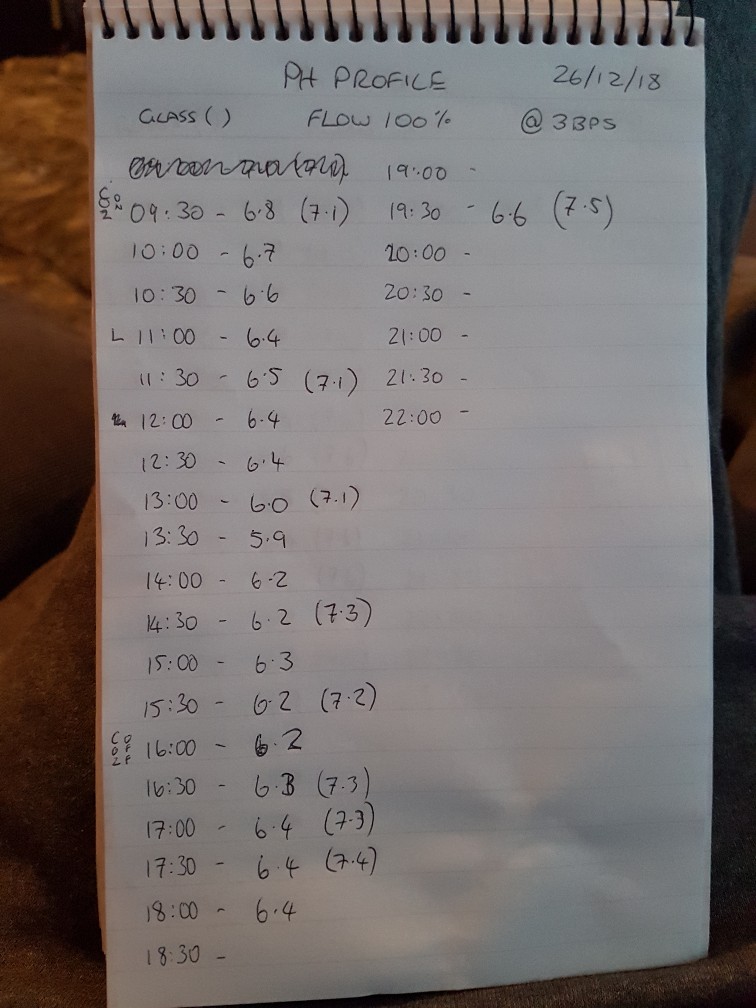 PH PROFILE 26/12/18
GLASS ( ) FLOW 100% @ 3BPS
19:00 -
CO2 ON 09:30 - 6.8 (7.1) 19:30 - 6.6 (7.5)
10:00 - 6.7 20:00 -
10:30 - 6.6 20:30 -
L 11:00 - 6.4 21:00 -
11:30 - 6.5 (7.1) 21:30 -
12:00 - 6.4 22:00 -
12:30 - 6.4
13:00 - 6.0 (7.1)
13:30 - 5.9
14:00 - 6.2
14:30 - 6.2 (7.3)
15:00 - 6.3
15:30 - 6.2 (7.2)
CO2 OFF 16:00 - 6.2
16:30 - 6.3 (7.3)
17:00 - 6.4 (7.3)
17:30 - 6.4 (7.4)
18:00 - 6.4
18:30 -